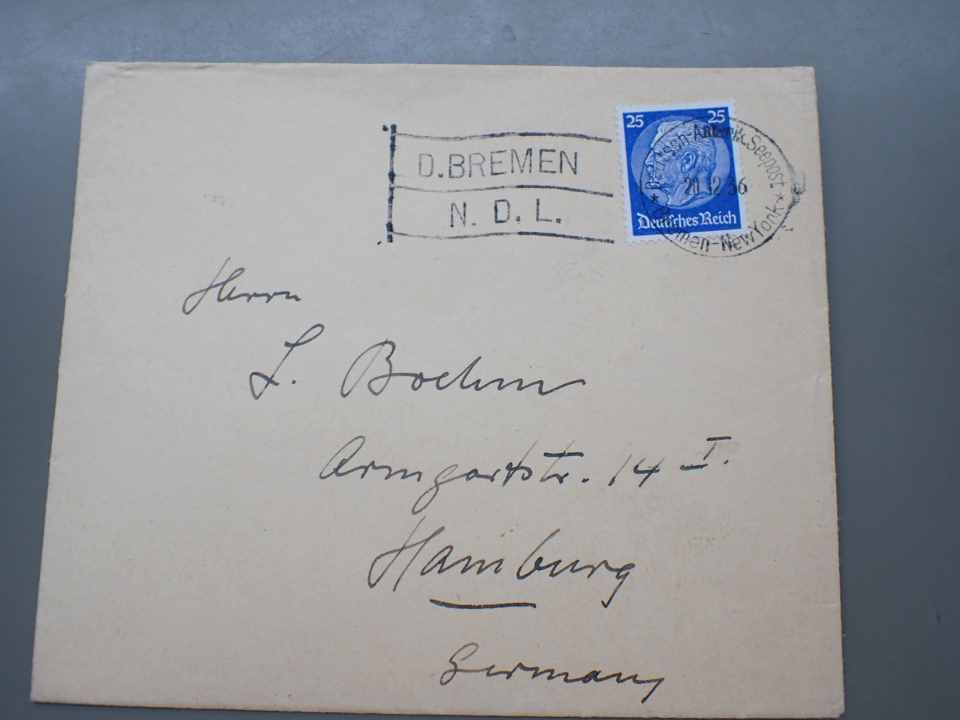 D. BREMEN
N. D. L.
25 25
Deutsches Reich
Dtsch-Amerik. Seepost
20 12 36
Bremen-New York
Herrn
L. Boehm
Armgartstr. 14 I.
Hamburg
Germany